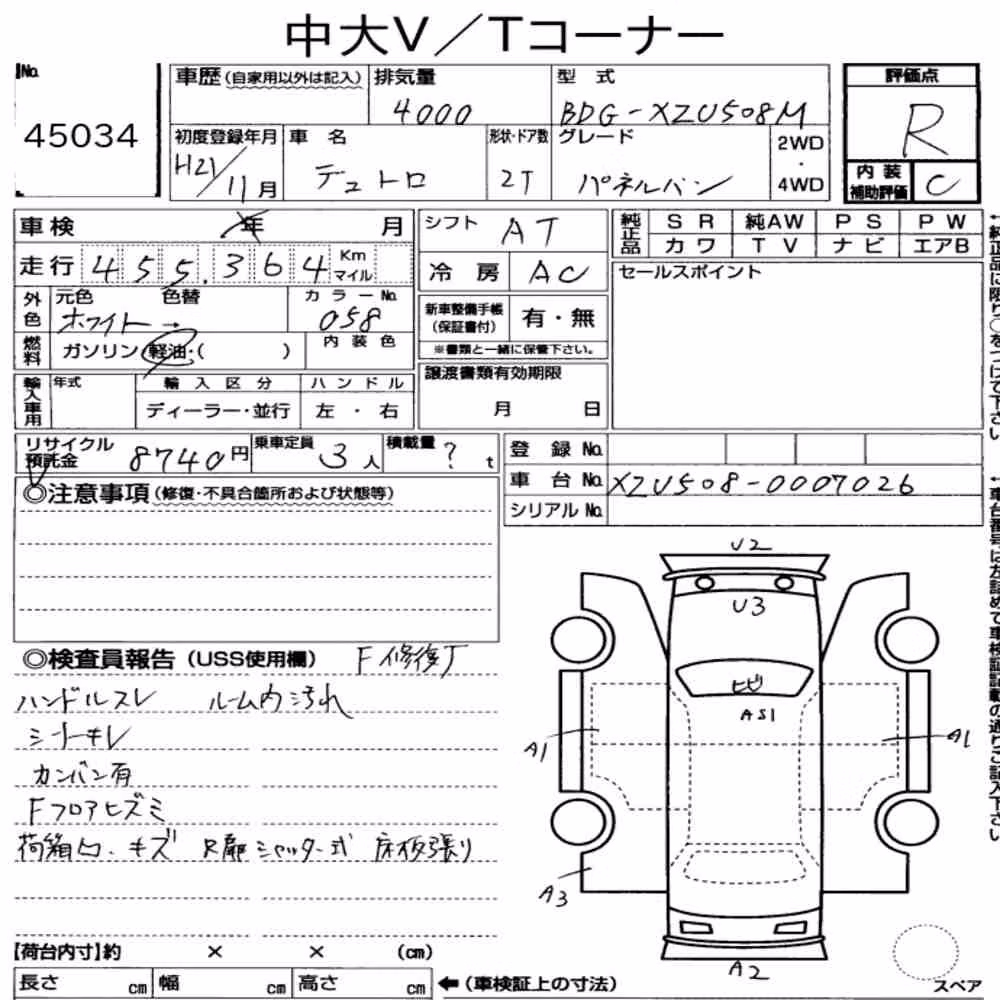 中大V／Tコーナー
No.
45034
車歴(自家用以外は記入)
排気量
4000
型 式
BDG-XZU508M
評価点
R
初度登録年月
H21/11月
車 名
デュトロ
形状・ドア数
2T
グレード
パネルバン
2WD
・
4WD
内 装
補助評価
C
車検 年 月
シフト AT
純正品
SR 純AW PS PW
カワ TV ナビ エアB
走行 455,364 Km
マイル
冷 房 AC
セールスポイント
外色
元色 色替
ホワイト→
カラーNo.
058
新車整備手帳
(保証書付)
有・無
※書類と一緒に保管下さい。
燃料
ガソリン・軽油・( )
内装色
譲渡書類有効期限
月 日
輸入車用
年式
輸入区分
ハンドル
ディーラー・並行
左 ・ 右
リサイクル
預託金
8740円
乗車定員
3人
積載量
? t
登 録 No.
車 台 No. XZU508-0007026
シリアル No.
◎注意事項(修復・不具合箇所および状態等)
◎検査員報告(USS使用欄) F修復了
ハンドルスレ ルーム内汚れ
シートキレ
カンバン有
Fフロアヒズミ
荷箱凹、キズ R扉シャッター式 床板張り
U2
U3
ヒビ
AS1
A1
A1
A3
A2
スペア
【荷台内寸】約 × × (cm)
長さ cm 幅 cm 高さ cm
←(車検証上の寸法)